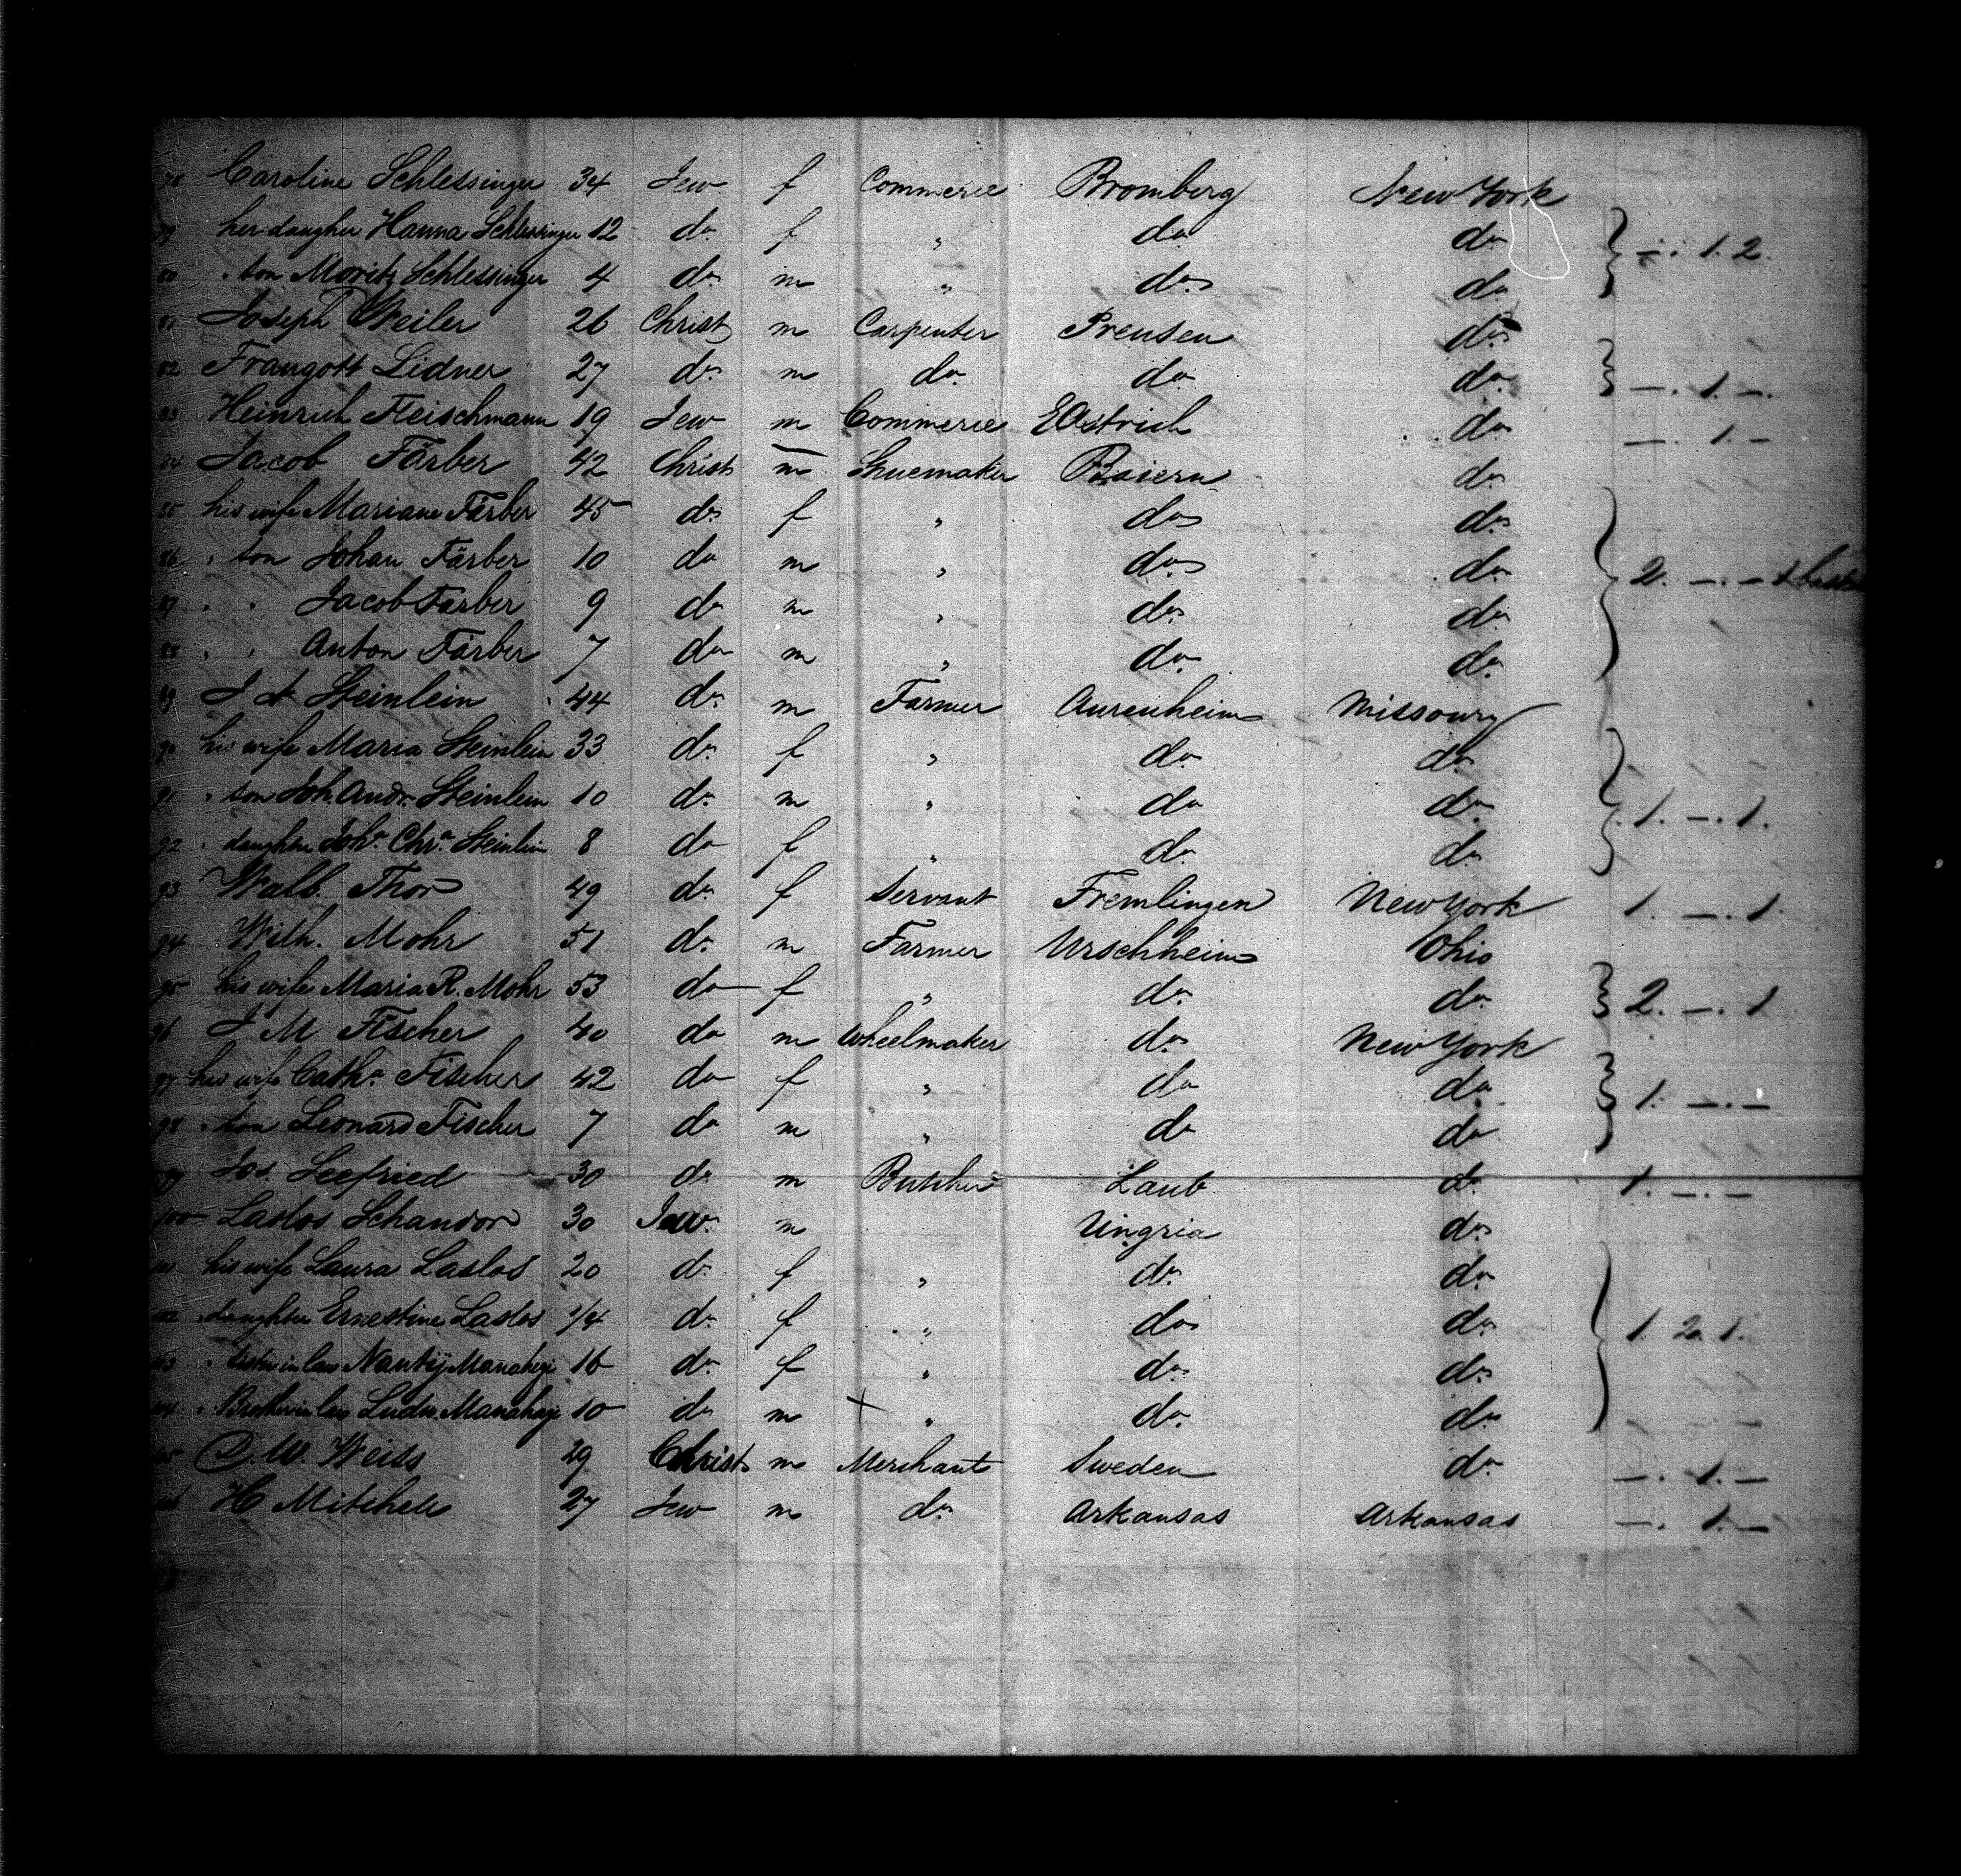 78 Caroline Schlessinger 34 Jew f Commerce Bromberg New York
79 her daugher Hanna Schlessinger 12 do f " do do
80 " son Moritz Schlessinger 4 do m " do do -. 1. 2.
81 Joseph Weiler 26 Christ m Carpenter Preusen do
82 Traugott Lidner 27 do m do do do -. 1. -.
83 Heinrich Fleischmann 19 Jew m Commerce Ostrich do -. 1. -
84 Jacob Färber 42 Christ m Shuemaker Baiern do
85 his wife Mariane Färber 45 do f " do do
86 " son Johan Färber 10 do m " do do 2. -. -
87 " " Jacob Färber 9 do m " do do
88 " " Anton Färber 7 do m " do do
89 J A Steinlein 44 do m Farmer Aurenheim Missoury
90 his wife Maria Steinlein 33 do f " do do
91 " son Joh. Andr. Steinlein 10 do m " do do 1. -. 1.
92 " daughter Joha Chra Steinlein 8 do f " do do
93 Walb. Thor 49 do f Servant Fremlingen New York 1. -. 1.
94 Wilh. Mohr 51 do m Farmer Urschheim Ohio
95 his wife Maria R. Mohr 53 do f " do do 2. -. 1
96 J M Fischer 40 do m Wheelmaker do New York
97 his wife Catha Fischer 42 do f " do do 1. -. -
98 " son Leonard Fischer 7 do m " do do
99 Jos. Seefried 30 do m Butcher Laub do 1. -. -
100 Laslos Schandor 30 Jew m Ungria do
101 his wife Laura Laslos 20 do f " do do
102 " daughter Ernestine Laslos 1/4 do f " do do 1. 2. 1.
103 " sister in law 16 do f " do do
104 " Brother in law 10 do m " do do
105 C. W. Weiss 29 Christ m Merchant Sweden do -. 1. -
106 H Mitchell 27 Jew m do Arkansas Arkansas -. 1. -